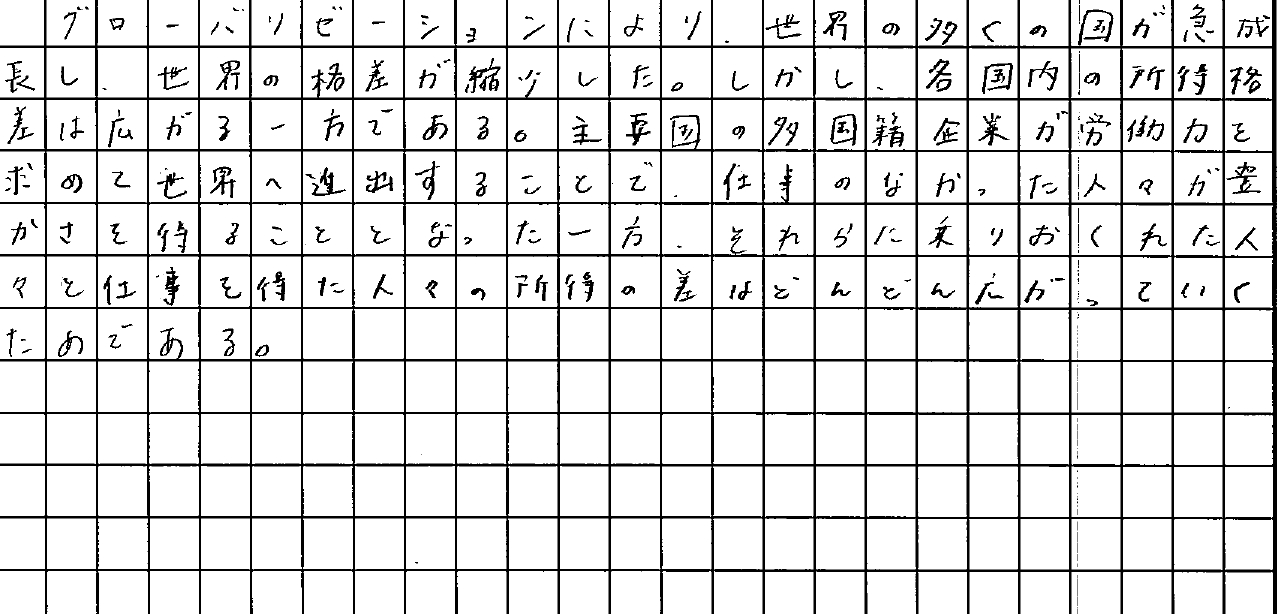 グローバリゼーションにより、世界の多くの国が急成
長し、世界の格差が縮少した。しかし、各国内の所得格
差は広がる一方である。主要国の多国籍企業が労働力を
求めて世界へ進出することで、仕事のなかった人々が豊
かさを得ることとなった一方、それらに乗りおくれた人
々と仕事を得た人々の所得の差はどんどん広がっていく
ためである。